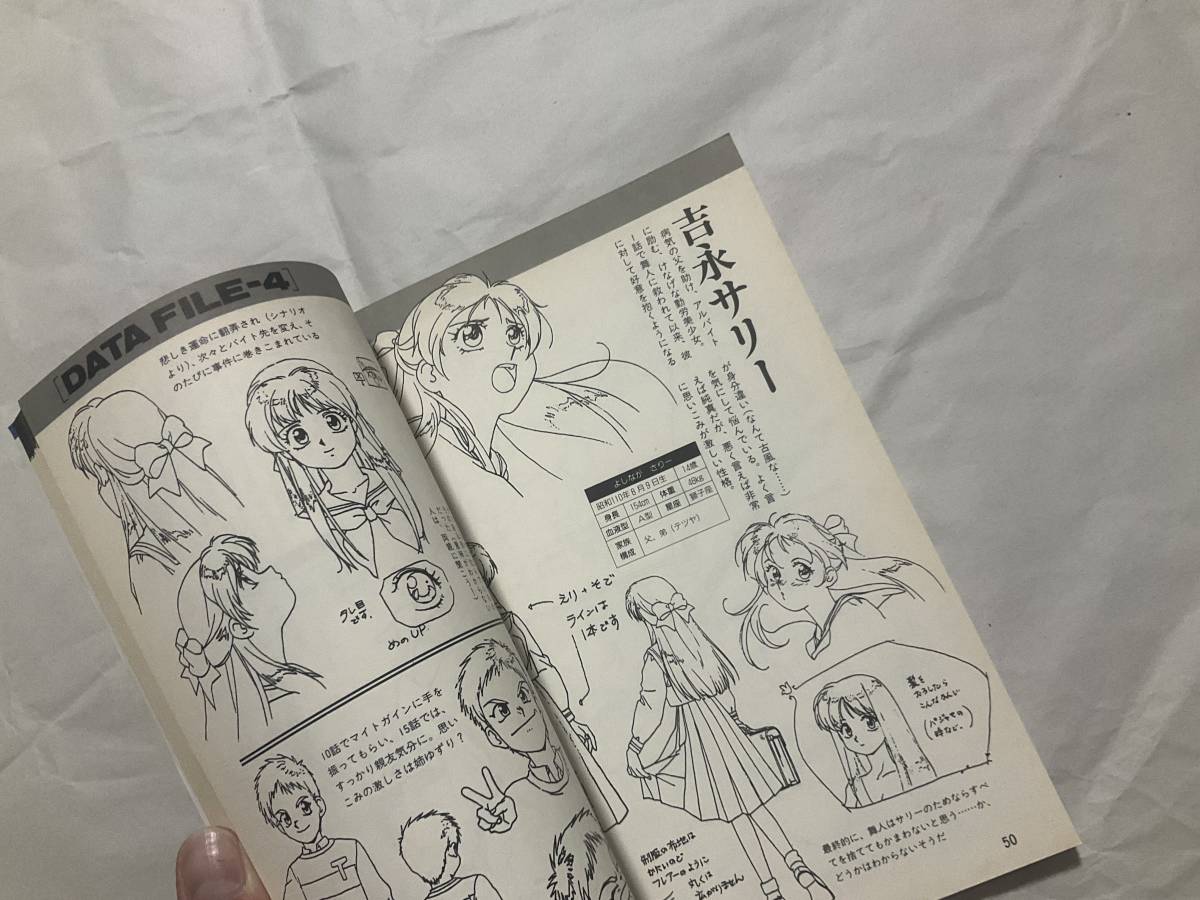 吉永サリー
病気の父を助け、アルバイト
に励む、けなげな勤労美少女。彼
1話で舞人に救われて以来、
に対して好意を抱くようになる
が身分違い(なんて古風な……)
を気にして悩んでいる。よく言
えば純真だが、悪く言えば非常
に思いこみが激しい性格。
よしなが さりー
昭和110年8月9日生 14歳
身長 154cm 体重 48kg
血液型 A型 星座 獅子座
家族構成 父、弟(テツヤ)
えり+そで
ラインは
1本です
髪を
おろしたら
こんなかんじ
(パジャマの
時など。)
制服の布地は
かたいので
フレアーのように
丸くは
広がりません
最終的に、舞人はサリーのためならすべ
てを捨ててもかまわないと思う……か、
どうかはわからないそうだ
50
[DATA FILE-4]
悲しき運命に翻弄され(シナリオ
より)、次々とバイト先を変え、そ
のたびに事件に巻きこまれている
タレ目
です。
めのUP.
10話でマイトガインに手を
振ってもらい、15話では、
すっかり親友気分に。思い
こみの激しさは姉ゆずり?
T